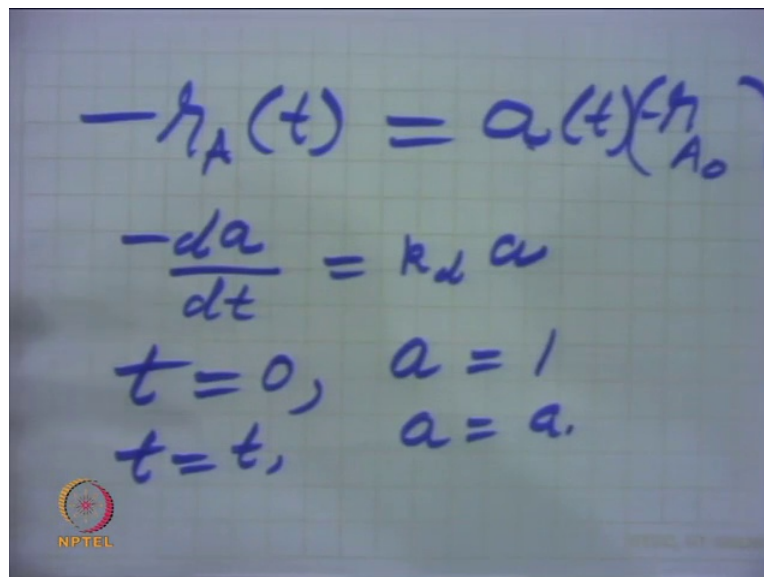 -r_A(t) = a(t)(-r_{A_0})
-da/dt = k_d a
t = 0, a = 1
t = t, a = a.
NPTEL